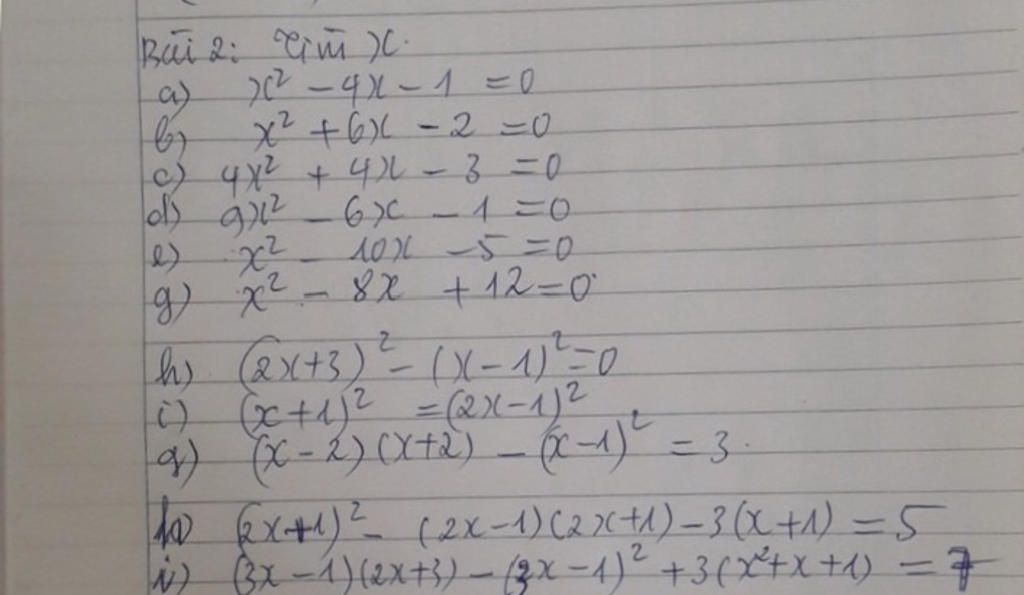 Bài 2: Tìm x.
a) x² - 4x - 1 = 0
b) x² + 6x - 2 = 0
c) 4x² + 4x - 3 = 0
d) 9x² - 6x - 1 = 0
e) x² - 10x - 5 = 0
g) x² - 8x + 12 = 0
h) (2x+3)² - (x-1)² = 0
i) (x+1)² = (2x-1)²
g) (x-2)(x+2) - (x-1)² = 3.
h) (2x+1)² - (2x-1)(2x+1) - 3(x+1) = 5
i) (3x-1)(2x+3) - (3x-1)² + 3(x²+x+1) = 7